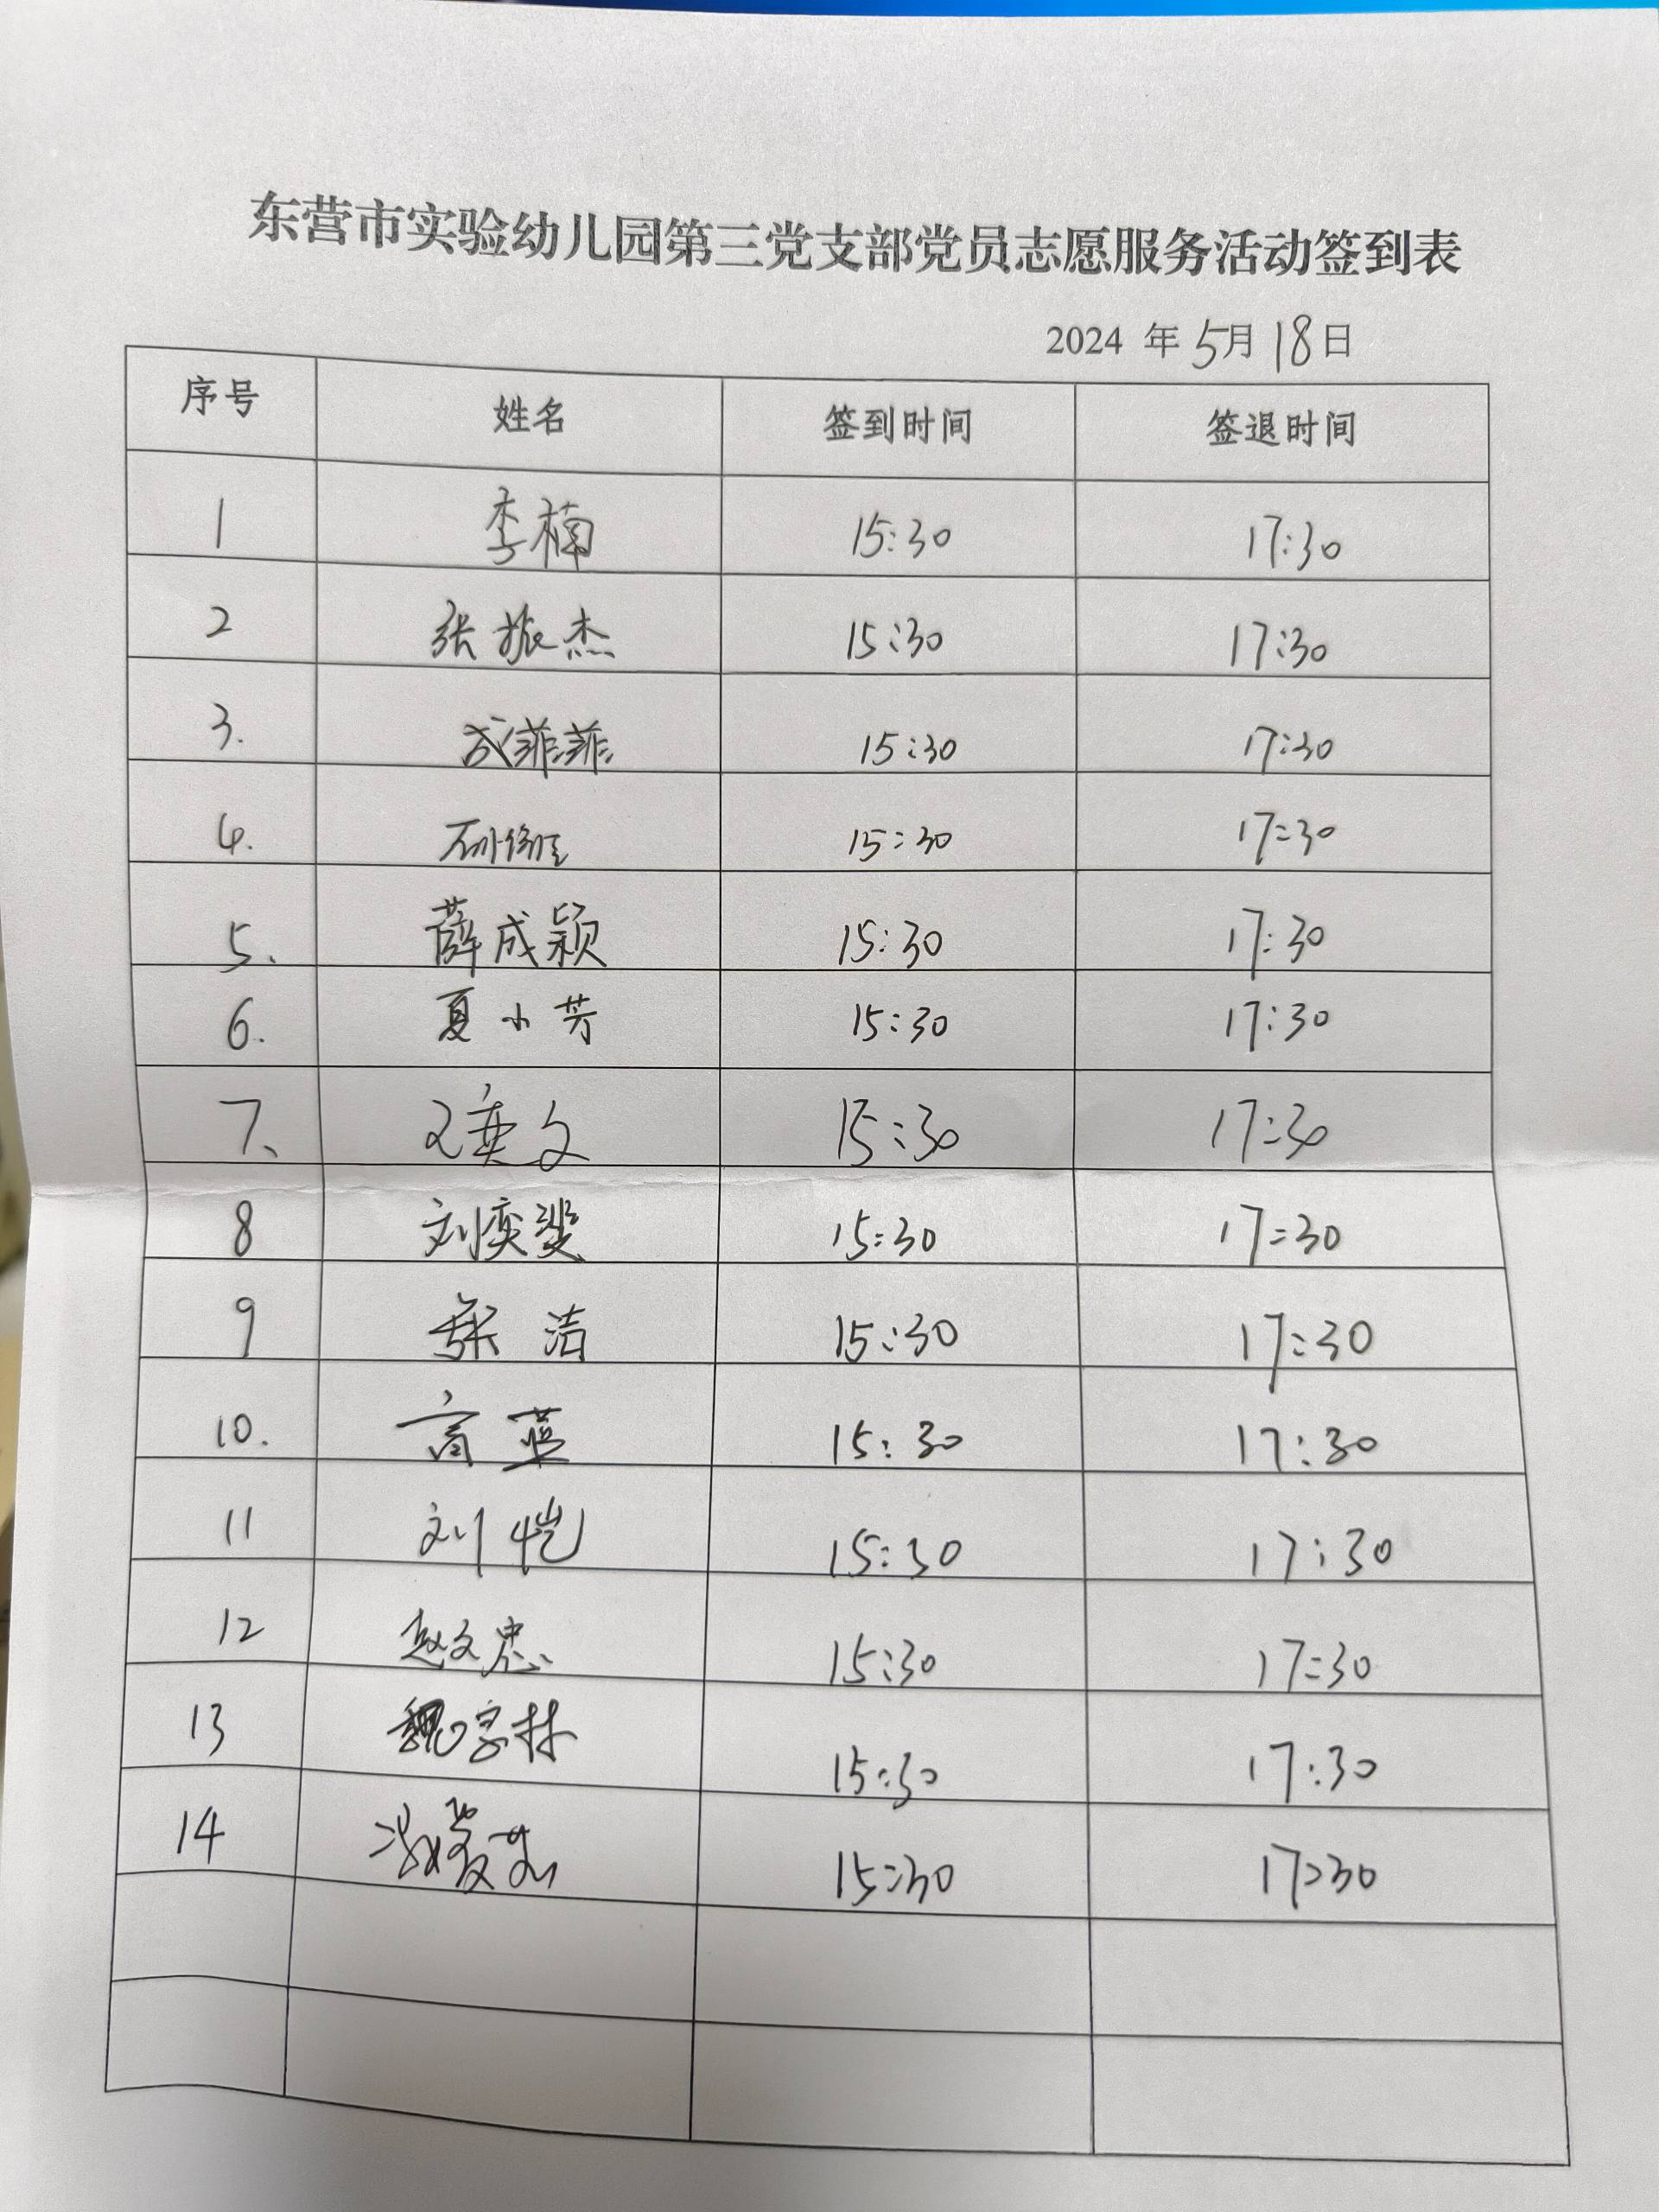 东营市实验幼儿园第三党支部党员志愿服务活动签到表
2024 年 5月 18日
序号 姓名 签到时间 签退时间
1 李楠 15:30 17:30
2 张振杰 15:30 17:30
3. 成菲菲 15:30 17:30
4. 15:30 17:30
5. 薛成颖 15:30 17:30
6. 夏小芳 15:30 17:30
7、 15:30 17:30
8 刘奕斐 15:30 17:30
9 张洁 15:30 17:30
10. 高蓝 15:30 17:30
11 刘恺 15:30 17:30
12 赵文忠 15:30 17:30
13 魏字林 15:30 17:30
14 15:30 17:30